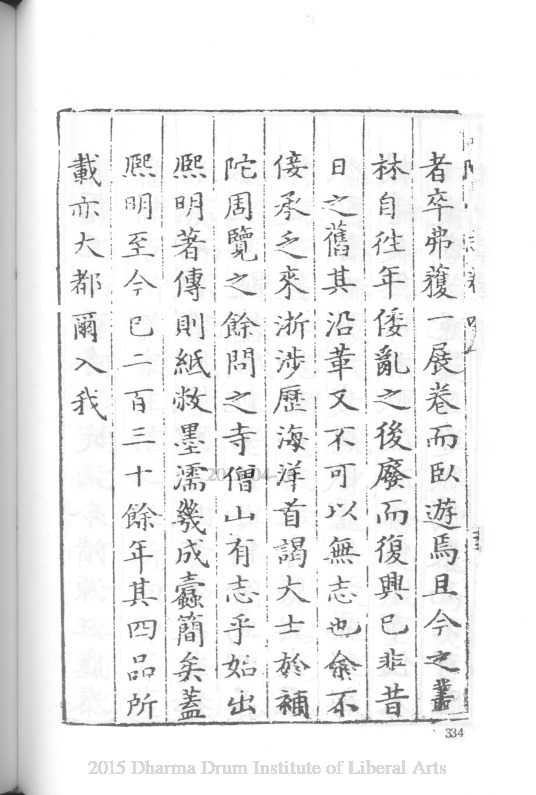 者卒弗獲一展卷而臥遊焉且今之叢
林自徃年倭亂之後廢而復興已非昔
日之舊其沿革又不可以無志也余不
佞承乏來浙涉歷海洋首謁大士於補
陀周覽之餘問之寺僧山有志乎始出
熈明著傳則紙敝墨濡幾成蠹簡矣蓋
熈明至今已二百三十餘年其四品所
載亦大都爾入我
334
2015 Dharma Drum Institute of Liberal Arts